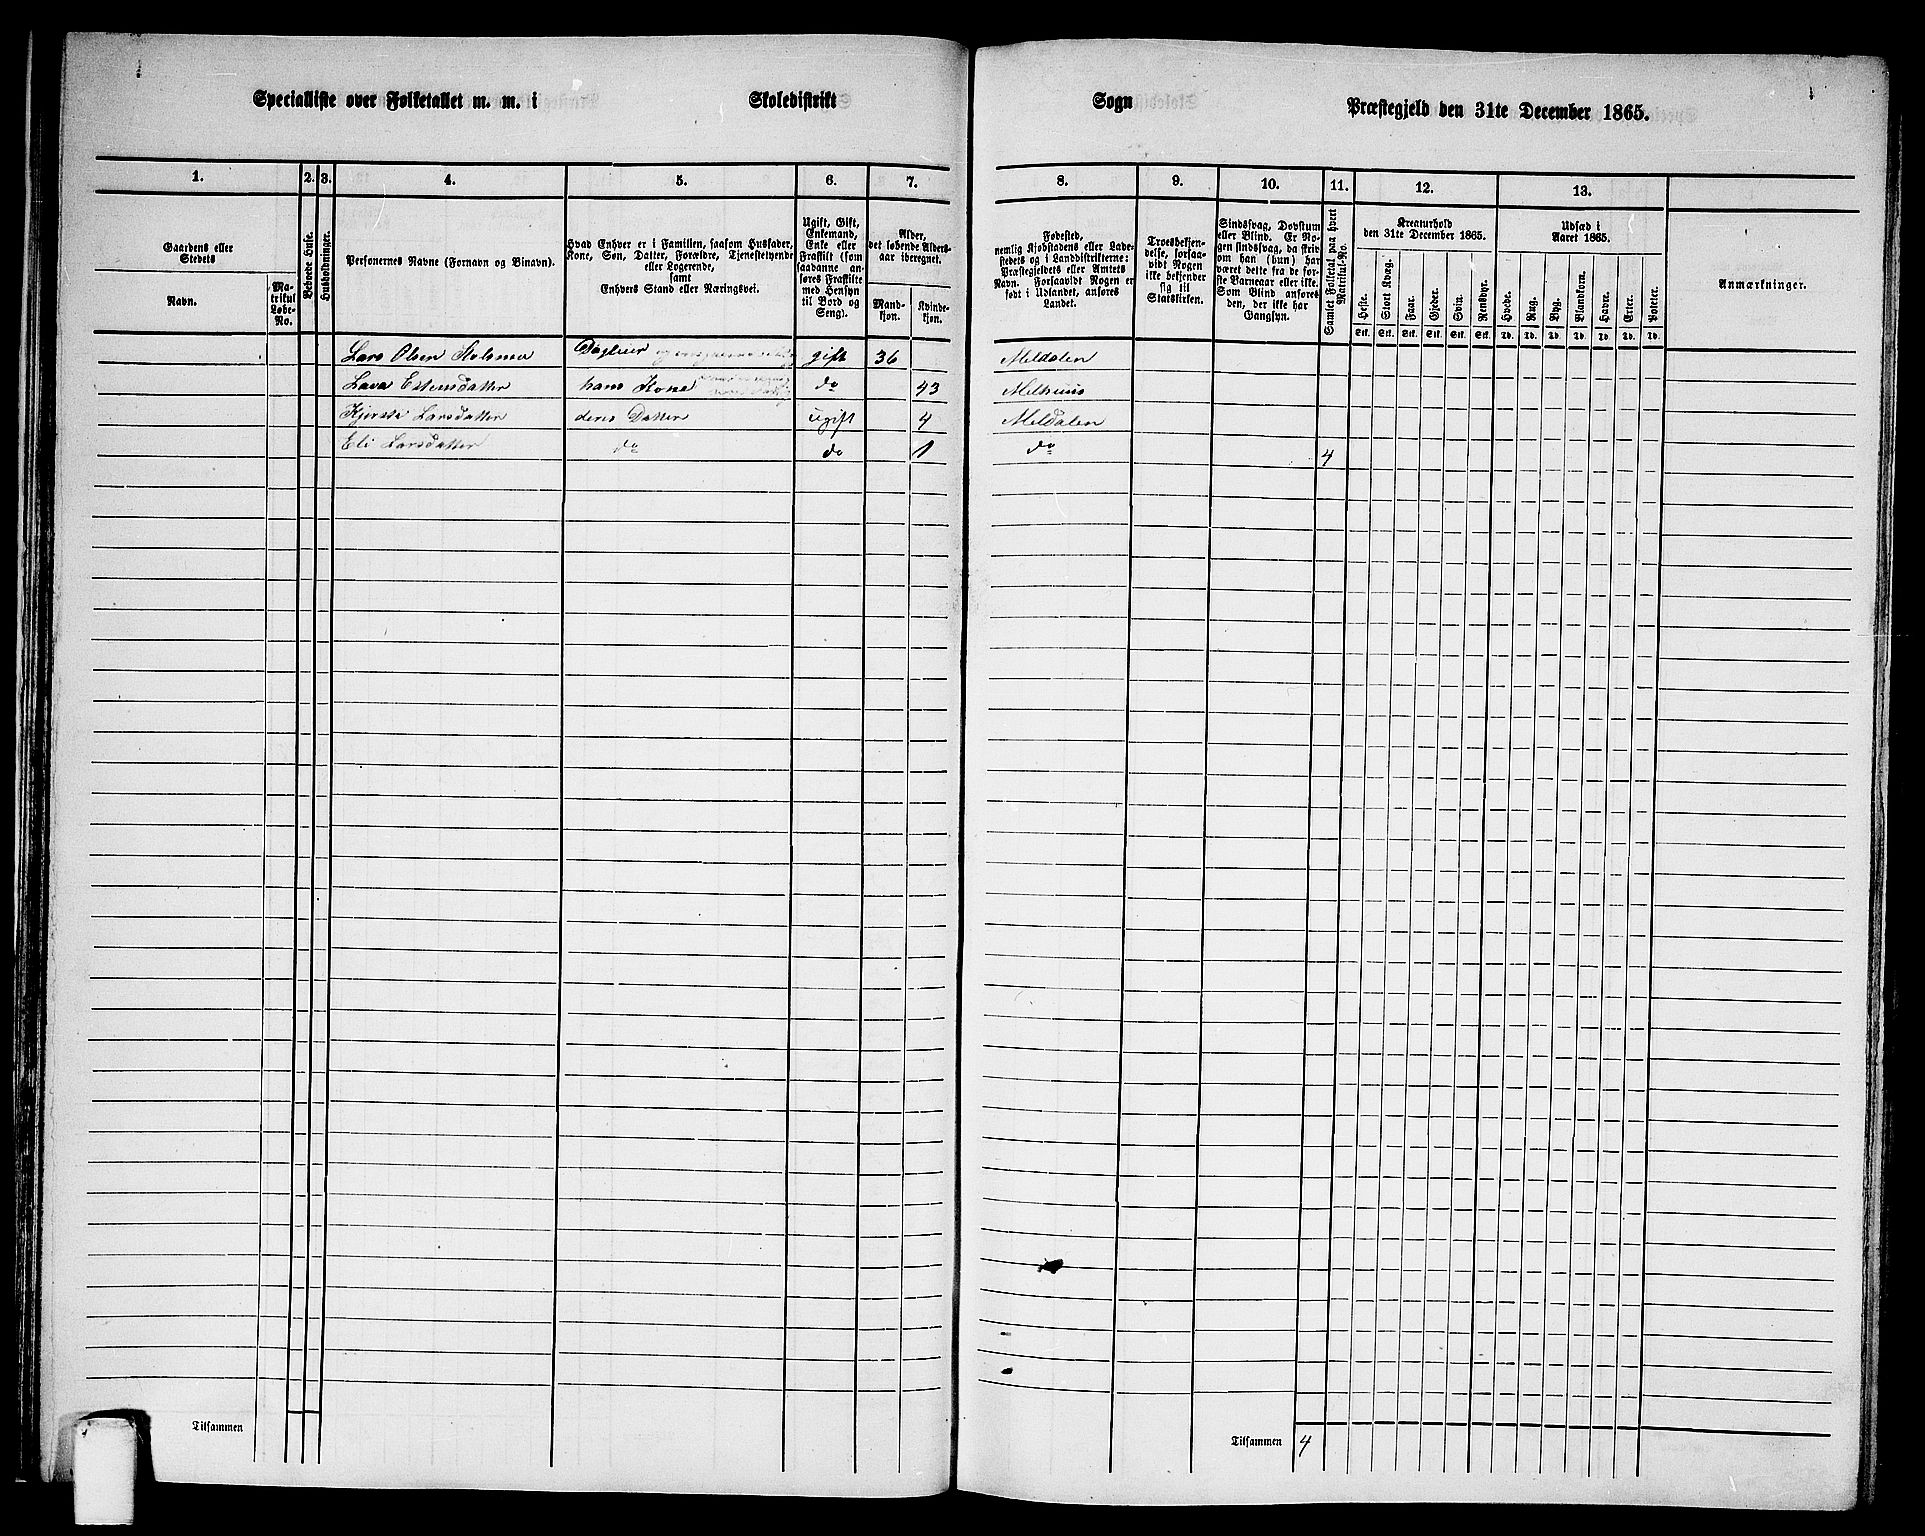 Specialliste over Folketallet m. m. i Skoledistrikt Sogn Præstegjeld den 31te December 1865.
1. 2. 3. 4. 5. 6. 7. 8. 9. 10. 11. 12. 13.
Gaardens eller Stedets
Navn.
Matrikul Løbe-No.
Beboede Huse.
Husholdninger.
Personernes Navne (Fornavn og Binavn).
Hvad Enhver er i Familien, saasom Husfader,
Kone, Søn, Datter, Forældre, Tjenestetyende
eller Logerende,
samt
Enhvers Stand eller Næringsvei.
Ugift, Gift,
Enkemand,
Enke eller
Fraskilt (som
saadanne an-
føres Fraskilte
med Hensyn
til Bord og
Seng).
Alder,
det løbende Alders-
aar iberegnet.
Mand-
kjøn.
Kvinde-
kjøn.
Fødested,
nemlig Kjøbstadens eller Lade-
stedets og i Landdistrikterne:
Præstegjeldets eller Amtets
Navn. Forsaavidt Nogen er
født i Udlandet, anføres
Landet.
Troesbekjen-
delse, forsaa-
vidt Nogen
ikke bekjender
sig til
Statskirken.
Sindssvag, Døvstum
eller Blind. Er No-
gen sindssvag, da skriv
om han (hun) har
været dette fra de før-
ste Barneaar eller ikke.
Som Blind anføres
den, der ikke har
Gangsyn.
Samlet Folketal paa hvert
Matrikul-No.
Kreaturhold
den 31te December 1865.
Heste. Stort Kvæg. Faar. Gjeder. Svin. Rensdyr.
Stk. Stk. Stk. Stk. Stk. Stk.
Udsæd i
Aaret 1865.
Hvede. Rug. Byg. Blandkorn. Havre. Erter. Poteter.
Td. Td. Td. Td. Td. Td. Td.
Anmærkninger.
Lars Olsen gift 36 Meldalen
Estensdatter hans Kone do 43 Melhuus
Larsdatter deres Datter ugift 4 Meldalen
Eli Larsdatter do do 1 do 4
Tilsammen
Tilsammen 4